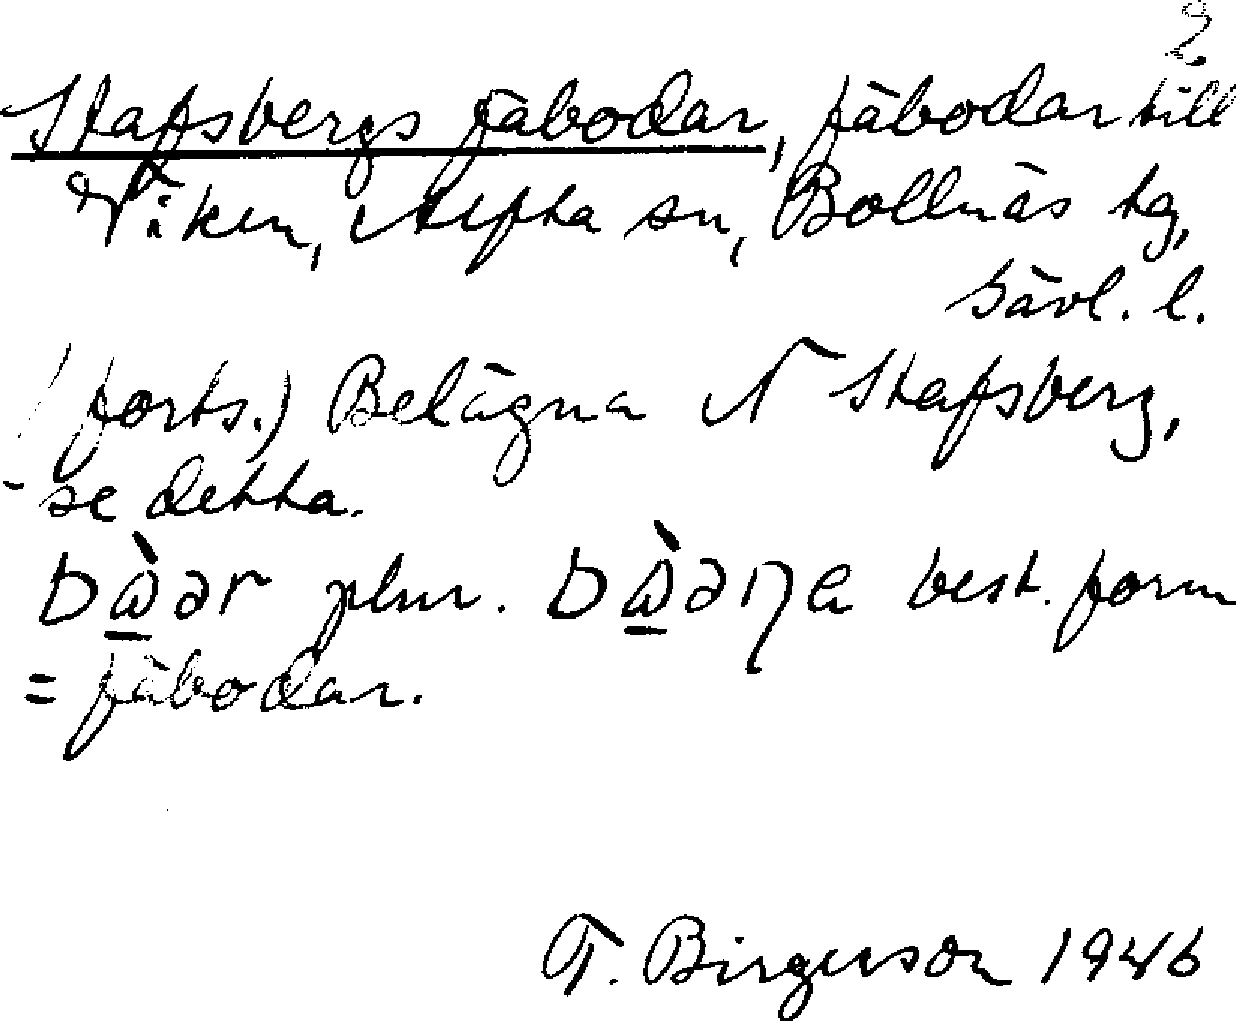 2.
Stafsbergs fäbodar, fäbodar till
Viken, Alfta sn, Bollnäs tg,
Gävl. l.
(forts.) Belägna N Stafsberg,
se detta.
bὼ̱ər plur. bὼ̱əηa best. form
= fäbodar.
T. Birgerson 1946